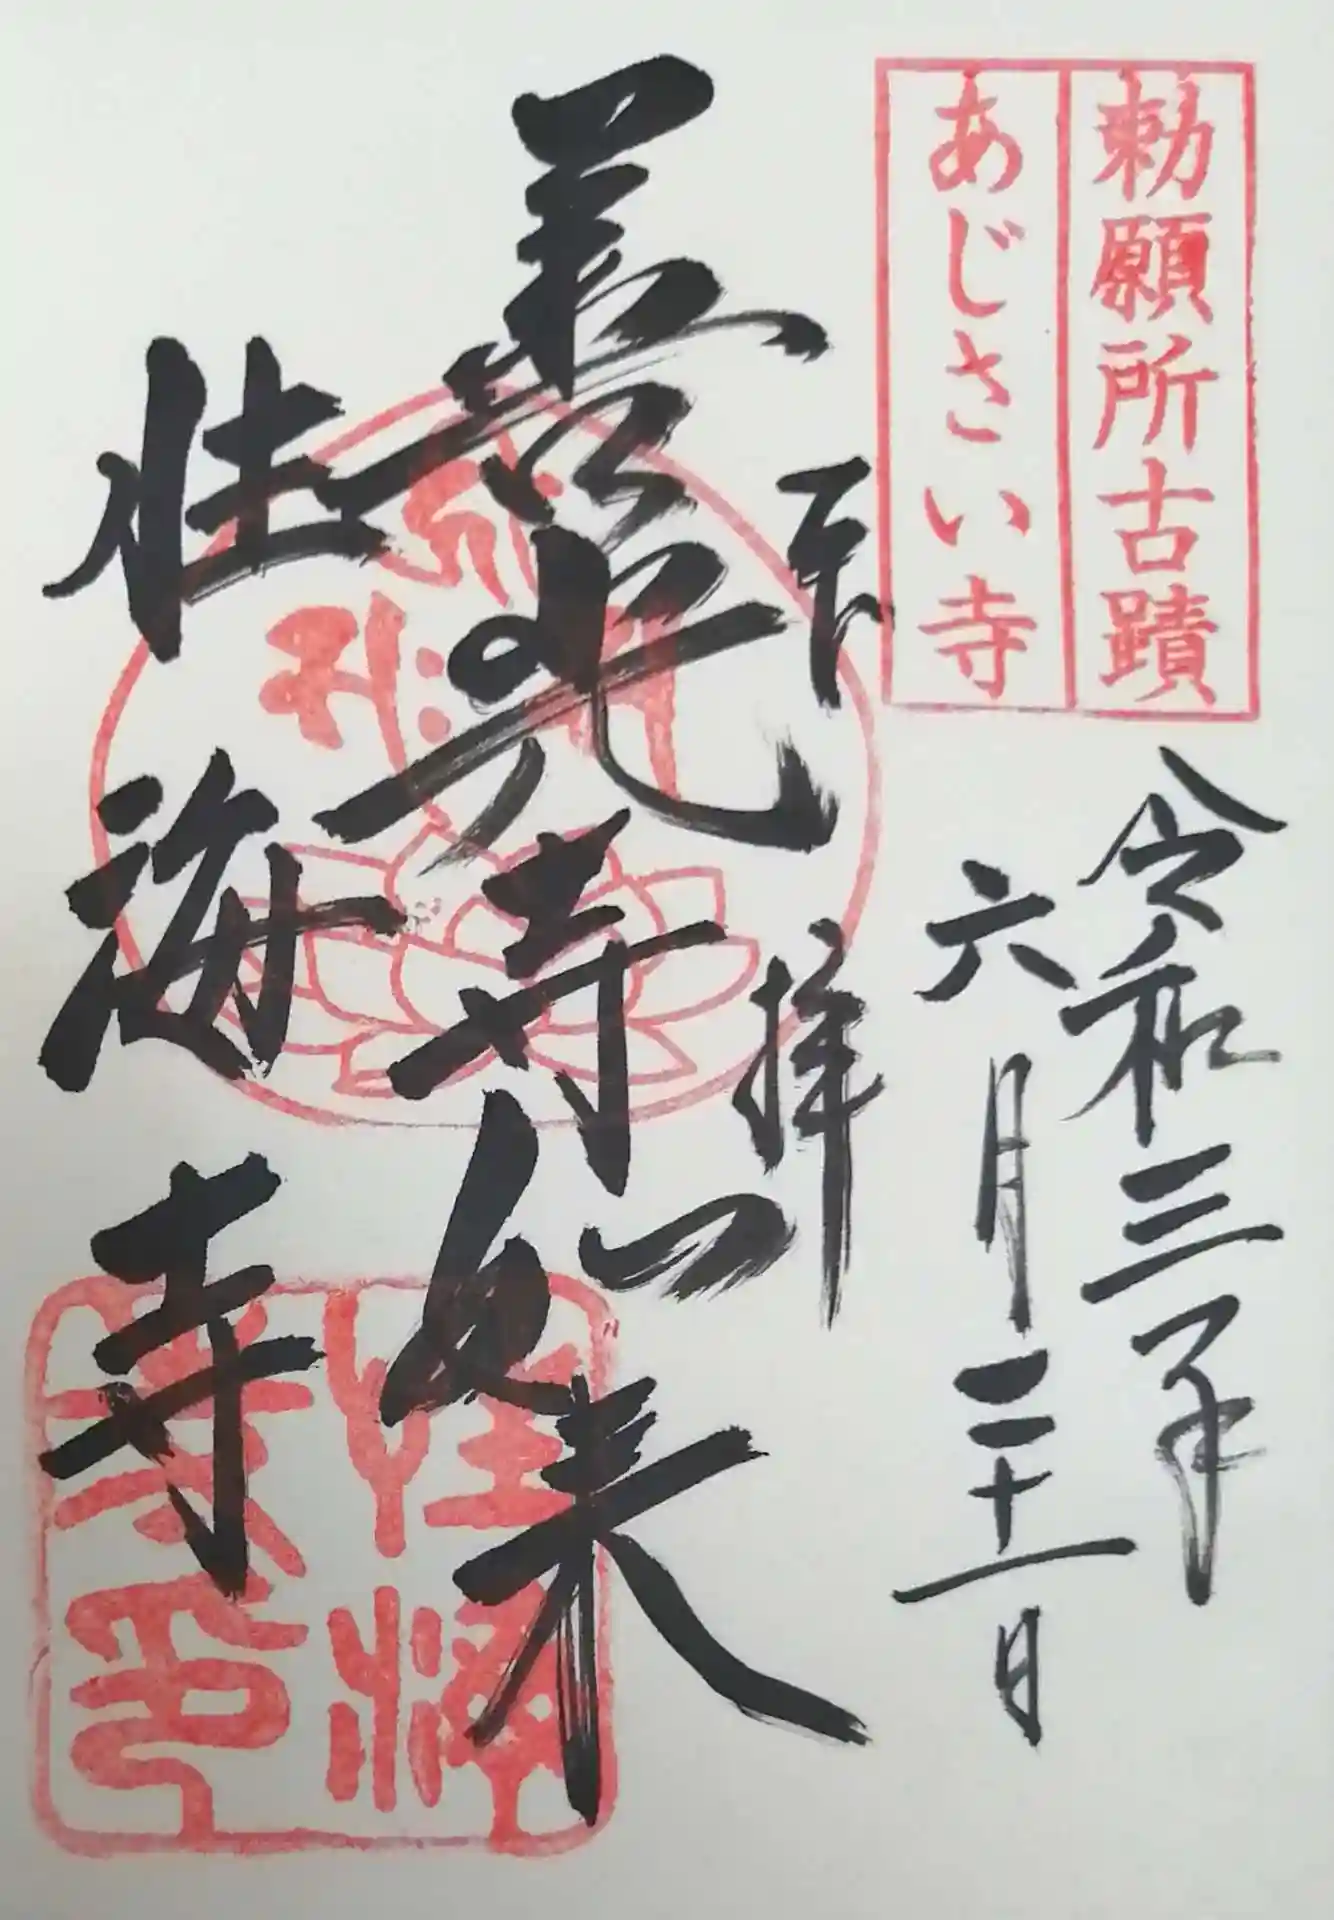 勅願所古蹟
あじさい寺
令和三年
六月二十一日
奉拝
善光寺如来
性海寺
性海
寺印